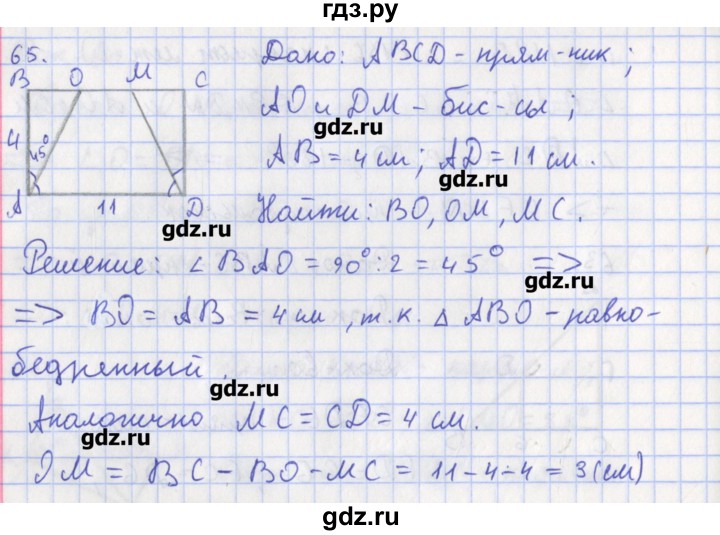 гдз.ру
65.
B O M C
4 45°
A 11 D
Дано: ABCD - прям-ник ;
AO и DM - бис-сы ;
gdz.ru
AB = 4 см ; AD = 11 см .
gdz.ru
Найти : BO, OM, MC .
gdz.ru
Решение: ∠ BAO = 90° : 2 = 45° =>
gdz.ru
=> BO = AB = 4 см , т. к. △ ABO - равно-
бедренный .
gdz.ru
Аналогично MC = CD = 4 см.
gdz.ru
OM = BC - BO - MC = 11 - 4 - 4 = 3 (см)
gdz.ru
gdz.ru